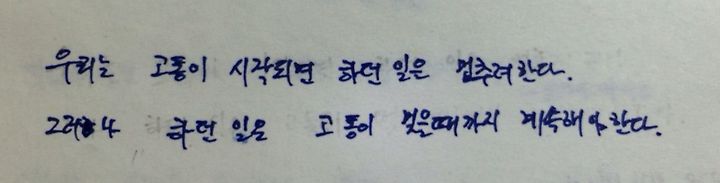 우리는 고통이 시작되면 하던 일은 멈추려한다.
그러나 하던 일은 고통이 멎을때까지 계속해야한다.